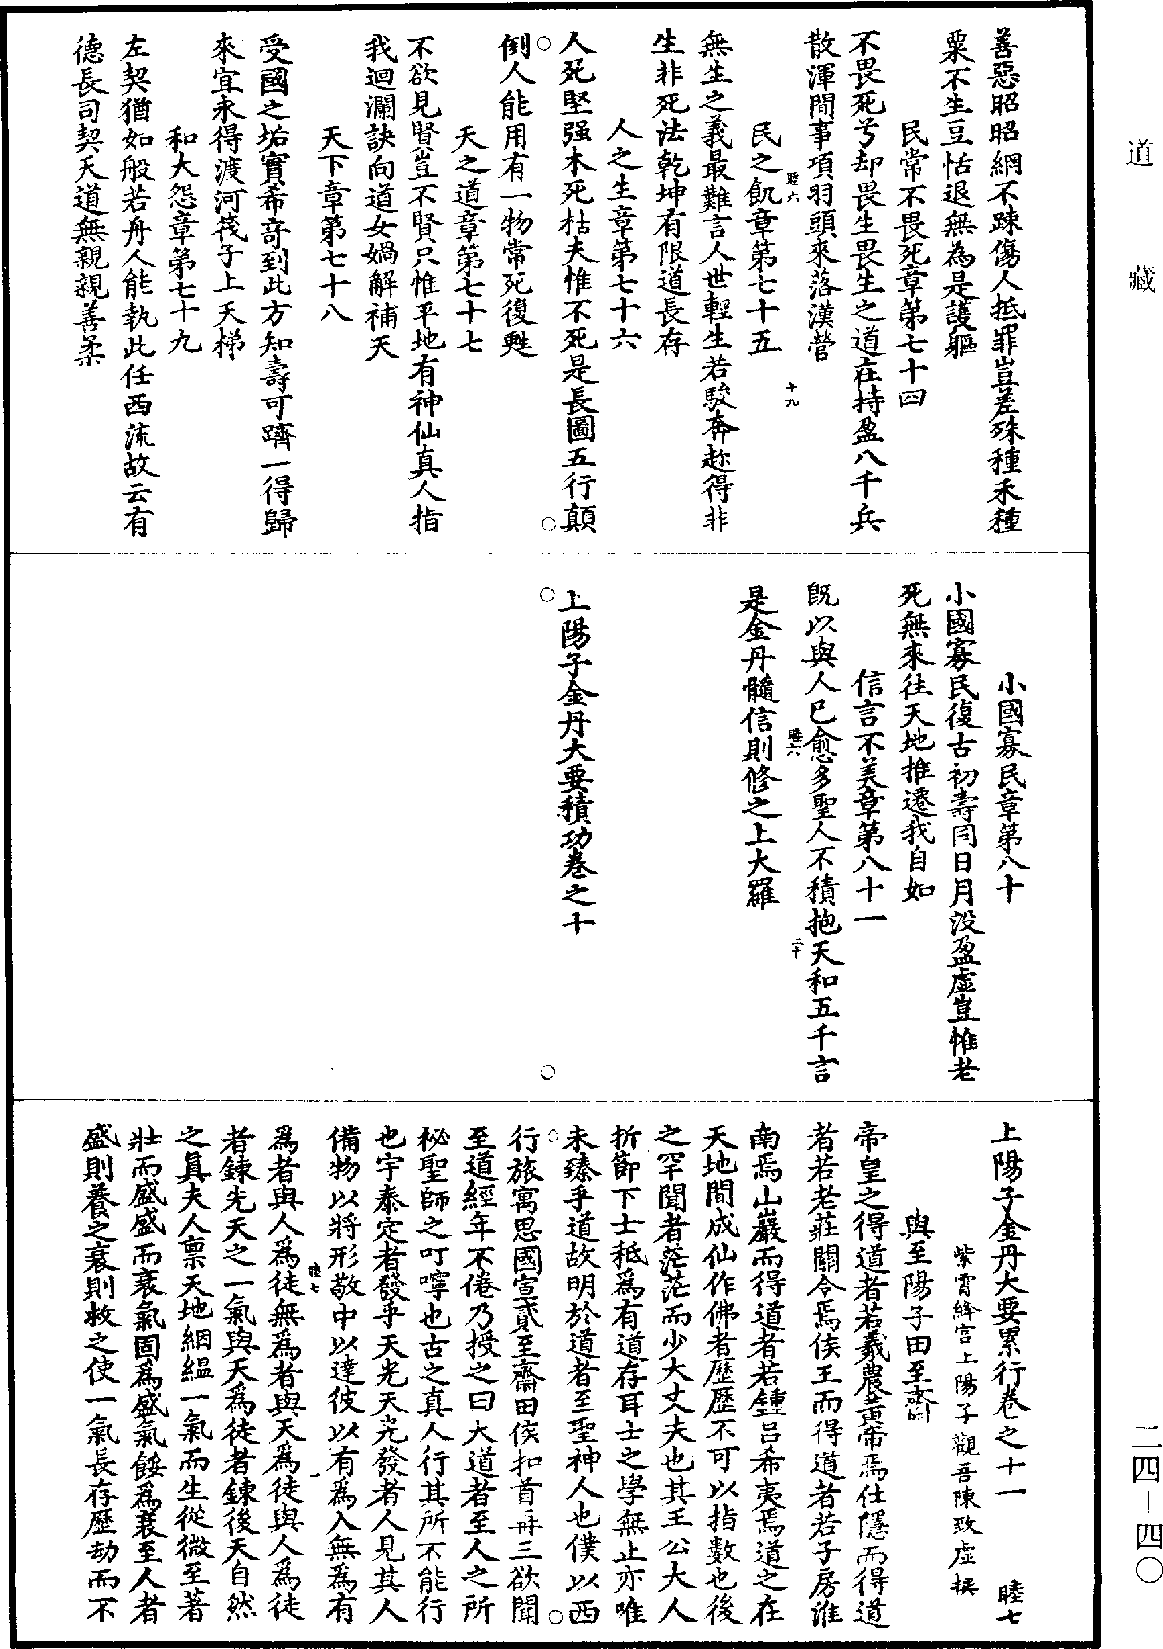 道藏
善惡昭昭網不踈傷人抵罪豈差殊種禾種
粟不生豆恬退無為是護軀
民常不畏死章第七十四
不畏死兮却畏生畏生之道在持盈八千兵
散渾閒事項羽頭來落漢營
民之飢章第七十五
睦六
十九
無生之義最難言人世輕生若駿奔趂得非
生非死法乾坤有限道長存
人之生章第七十六
人死堅强木死枯夫惟不死是長圖五行顛
倒人能用有一物常死復甦
天之道章第七十七
不欲見賢豈不賢只惟平地有神仙真人指
我迴瀾訣向道女媧解補天
天下章第七十八
受國之垢實希奇到此方知壽可躋一得歸
來宜永得渡河筏子上天梯
和大怨章第七十九
左契猶如般若舟人能執此任西流故云有
德長司契天道無親親善柔
小國寡民章第八十
小國寡民復古初壽同日月没盈虛豈惟老
死無來往天地推遷我自如
信言不美章第八十一
既以與人已愈多聖人不積抱天和五千言
睦六
二十
是金丹髓信則修之上大羅
上陽子金丹大要積功卷之十
上陽子金丹大要累行卷之十一
睦七
紫霄絳宮上陽子觀吾陳致虛撰
與至陽子田至齋
帝皇之得道者若羲農黃帝焉仕隱而得道
者若老莊關令焉侯王而得道者若子房淮
南焉山巖而得道者若鍾呂希夷焉道之在
天地間成仙作佛者歷歷不可以指數也後
之罕聞者茫茫而少大丈夫也其王公大人
折節下士秪為有道存耳士之學無止亦唯
未臻乎道故明於道者至聖神人也僕以西
行旅寓思國宣貳至齋田侯扣首再三欲聞
至道經年不倦乃授之曰大道者至人之所
秘聖師之叮嚀也古之真人行其所不能行
也宇泰定者發乎天光天光發者人見其人
備物以將形敬中以達彼以有為入無為有
為者與人為徒無為者與天為徒與人為徒
睦七
一
者鍊先天之一氣與天為徒者鍊後天自然
之眞夫人禀天地絪縕一氣而生從微至著
壯而盛盛而衰氣固為盛氣餒為衰至人者
盛則養之衰則救之使一氣長存歷劫而不
二四－四〇